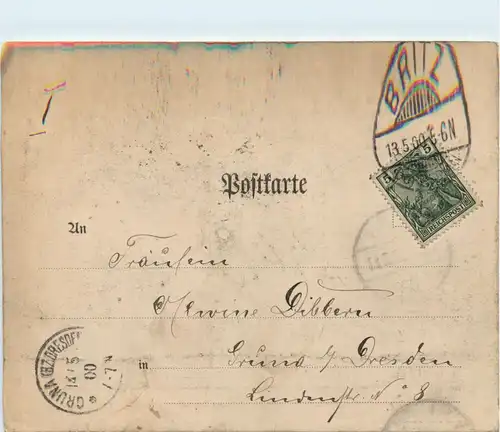 BRITZ
13.5.00.5-6N
5 5
REICHSPOST
Postkarte
An
Fräulein
Alwine Dibbern
in Gruna b/ Dresden
Lindenstr. No 8
GRUNA (BZ. DRESDEN)
00